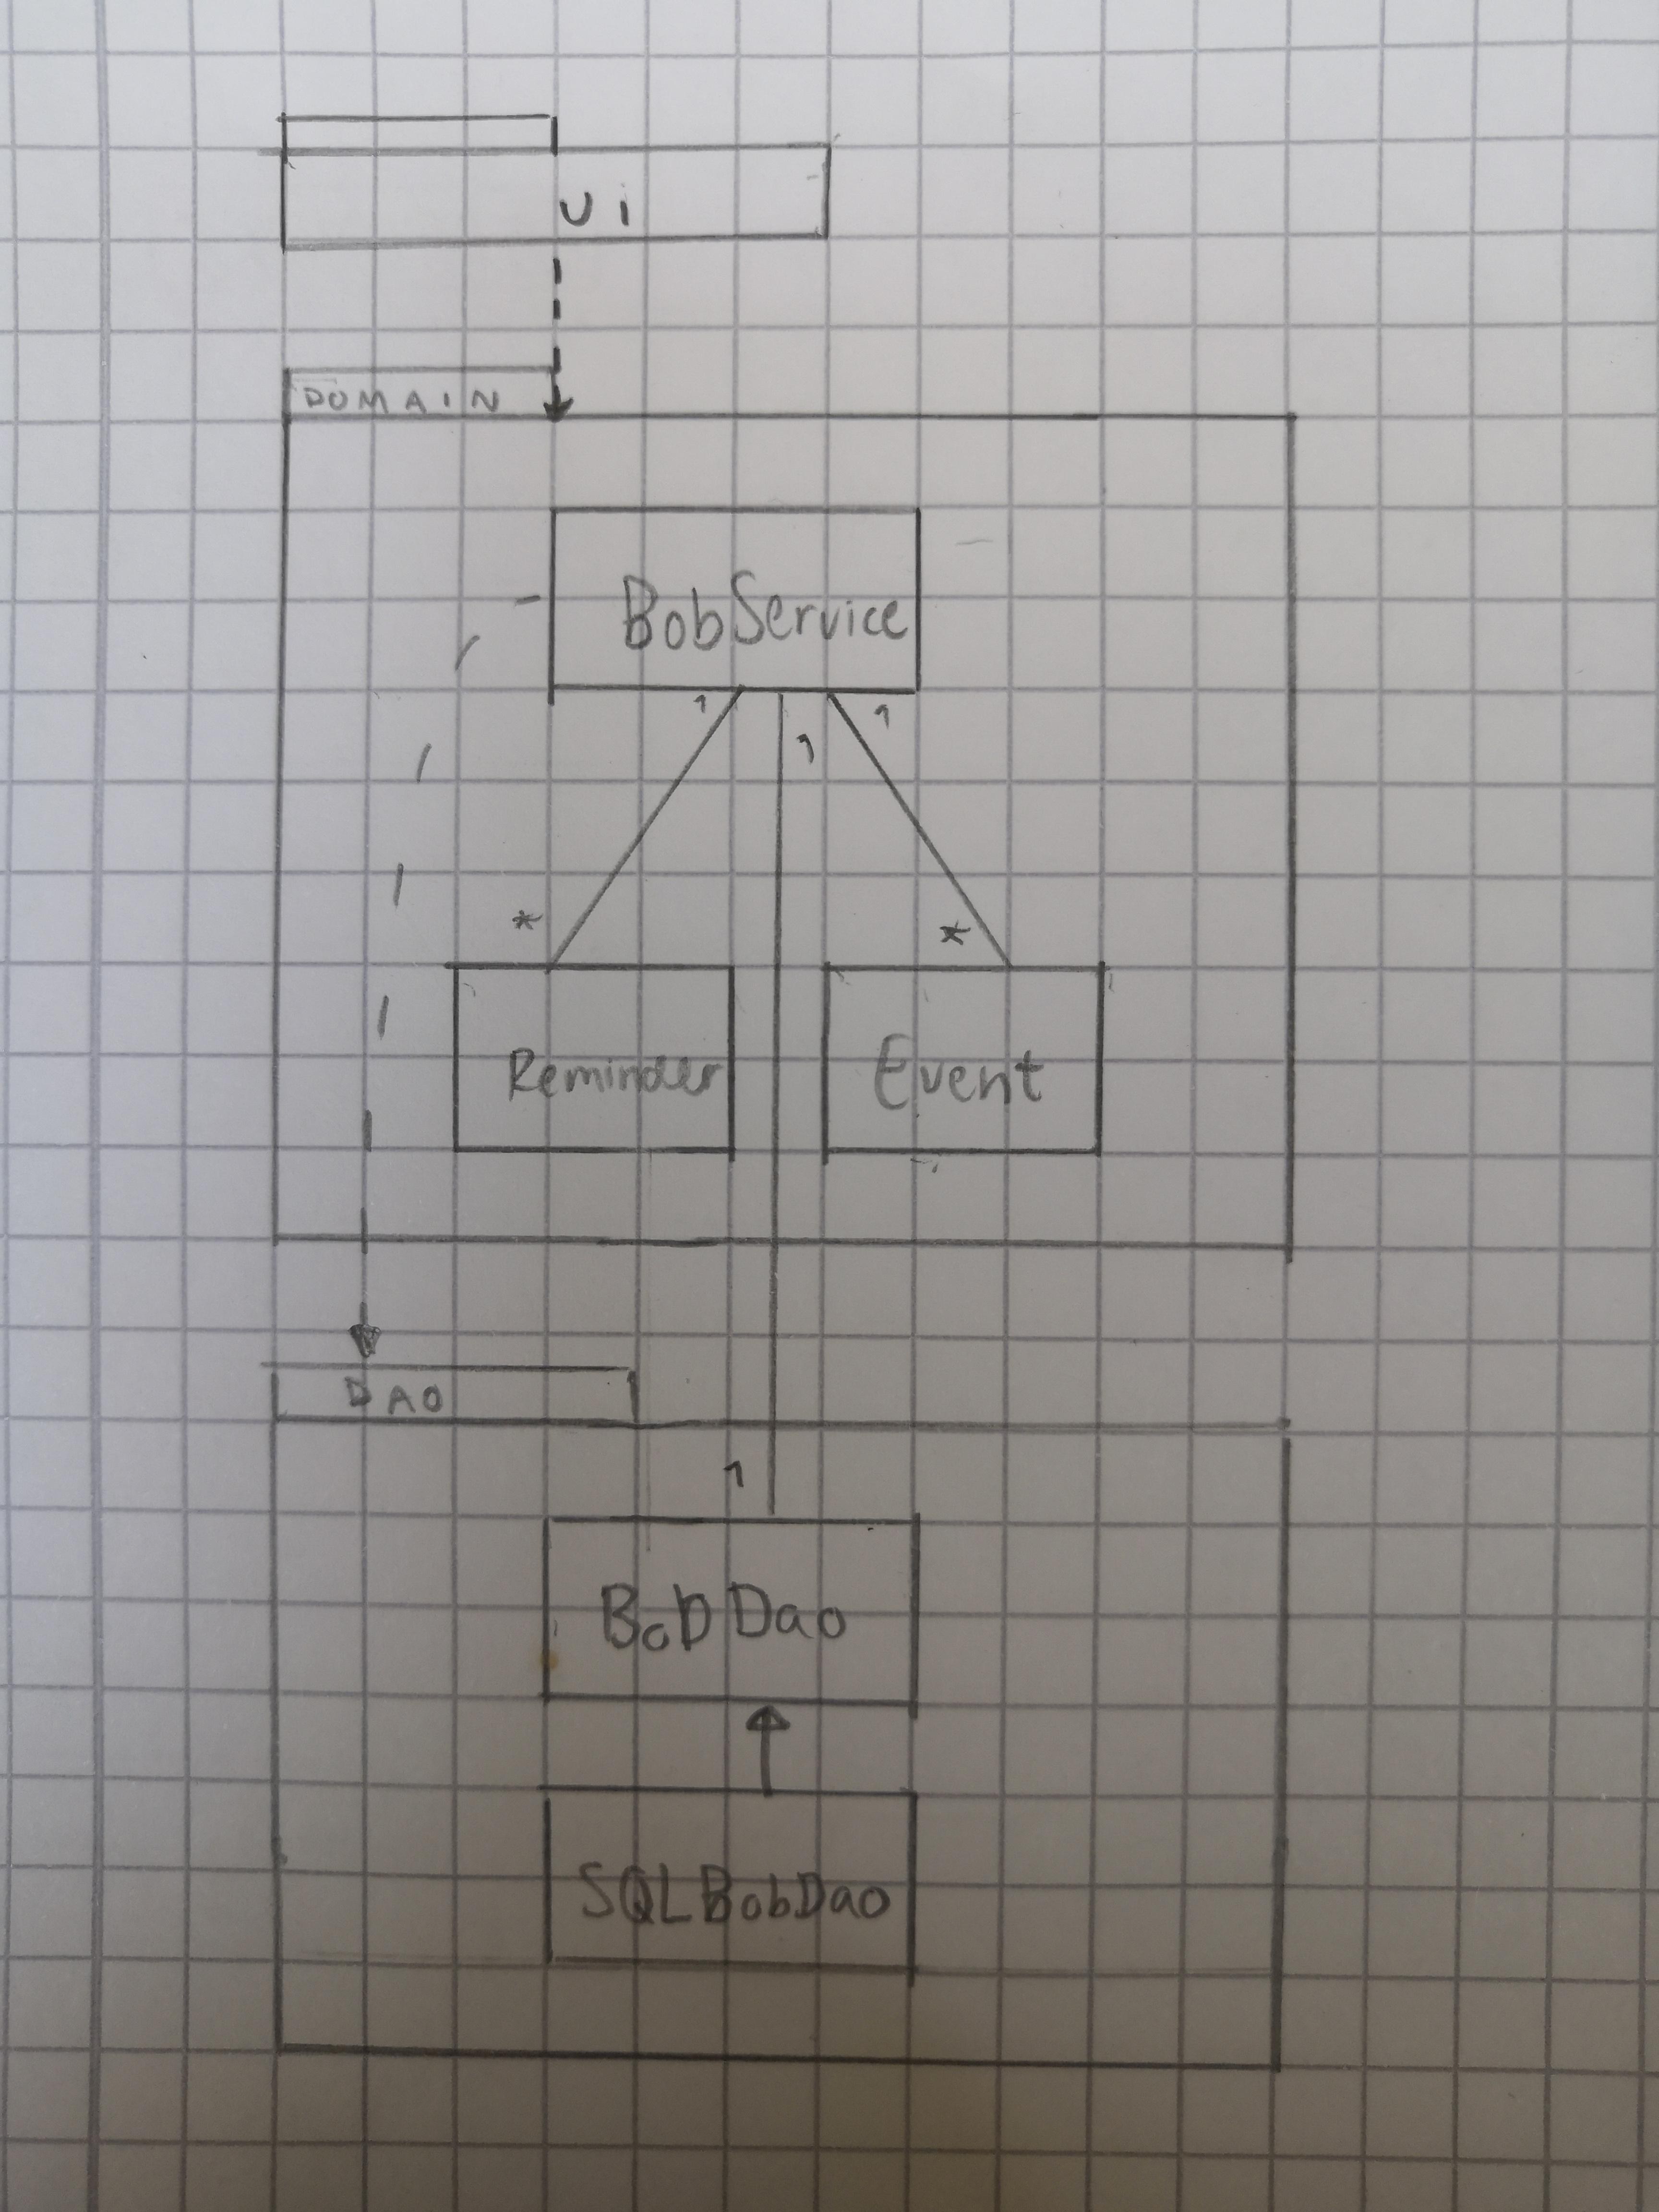 Ui
DOMAIN
BobService
1
1
1
*
*
Reminder
Event
DAO
1
BobDao
SQLBobDao